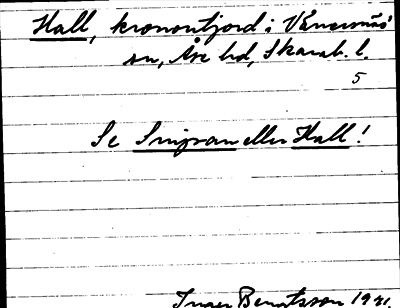 Hall, kronoutjord i Vänersnäs
sn, Åse hd, Skarab. l.
5
Se eller Hall!
Inger Bengtsson 1931.